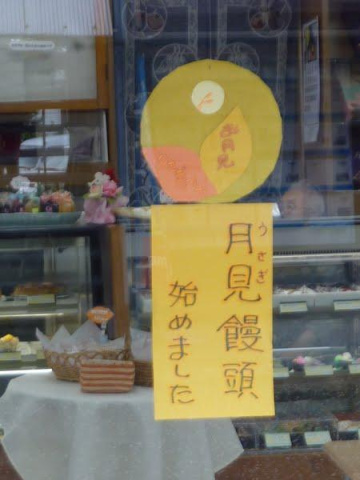 お月見
うさぎ
月見饅頭
始めました